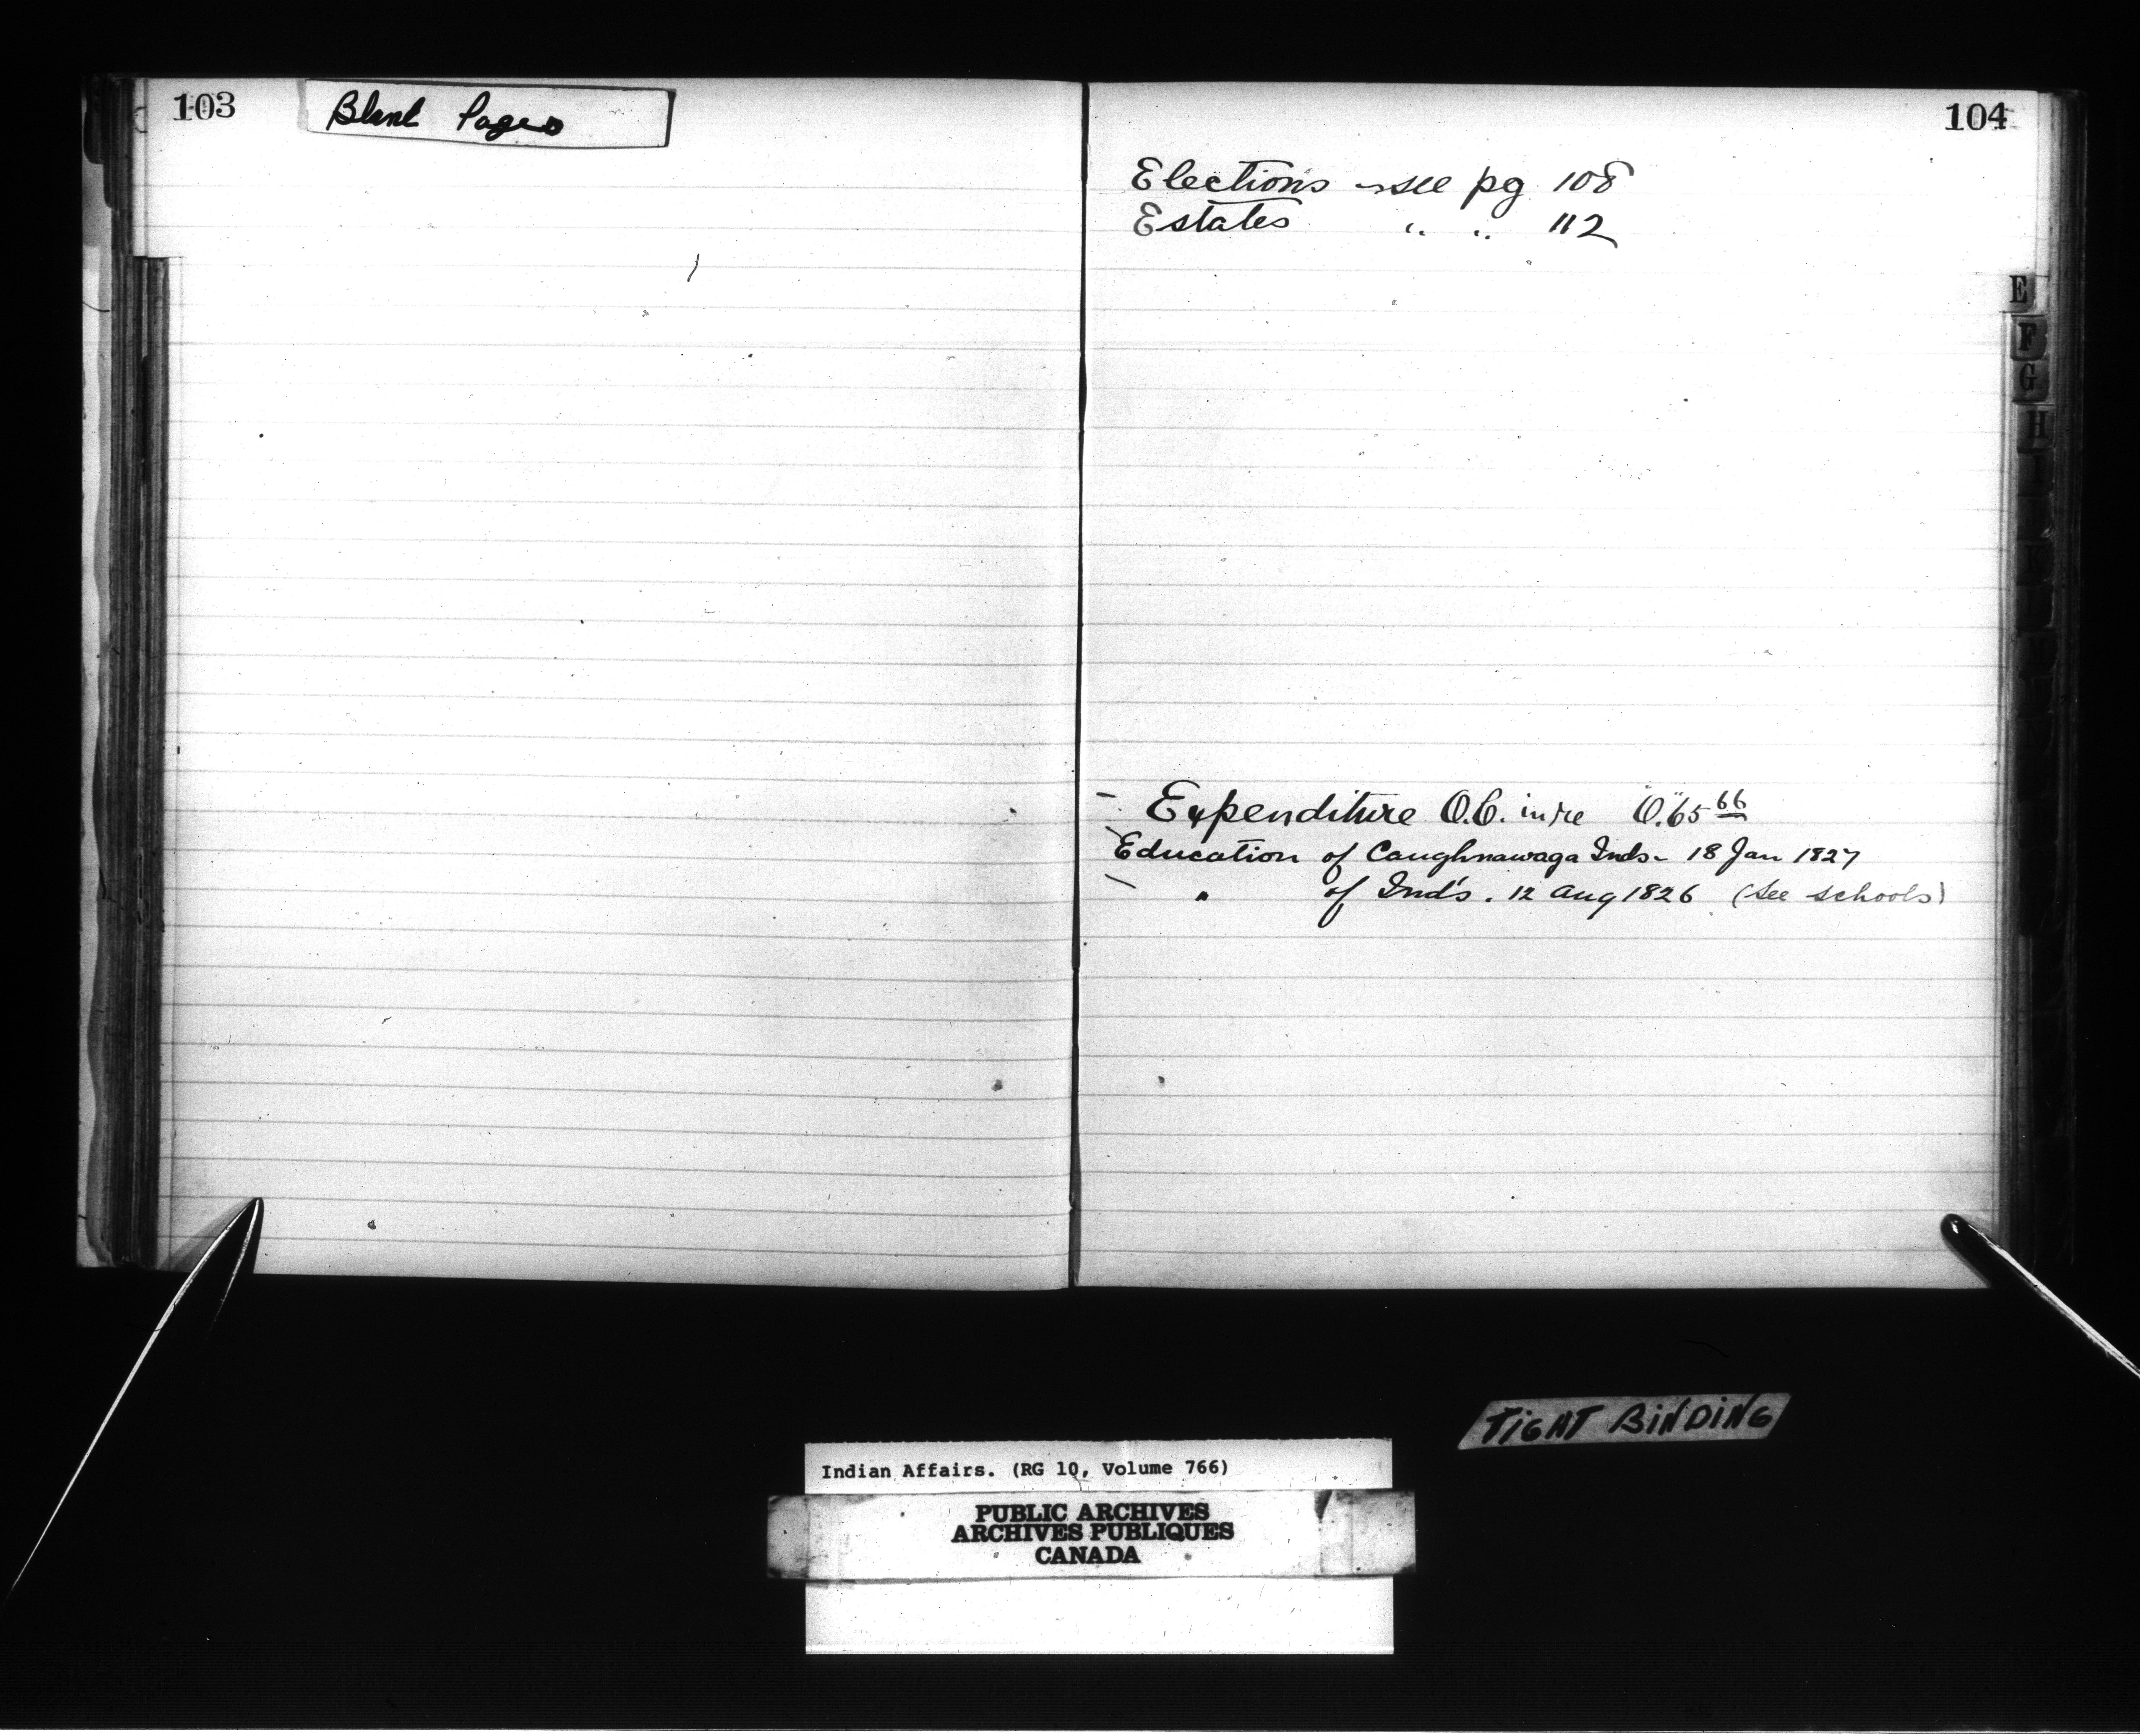 103
Blank Pages
104
Elections - see pg 108
Estates " " 112
E
F
G
H
I
- Expenditure O.C. in re "O." 65 66
- Education of Caughnawaga Inds - 18 Jan 1827
- " of Ind's. 12 Aug 1826 (See schools)
TIGHT BINDING
Indian Affairs. (RG 10, Volume 766)
PUBLIC ARCHIVES
ARCHIVES PUBLIQUES
CANADA